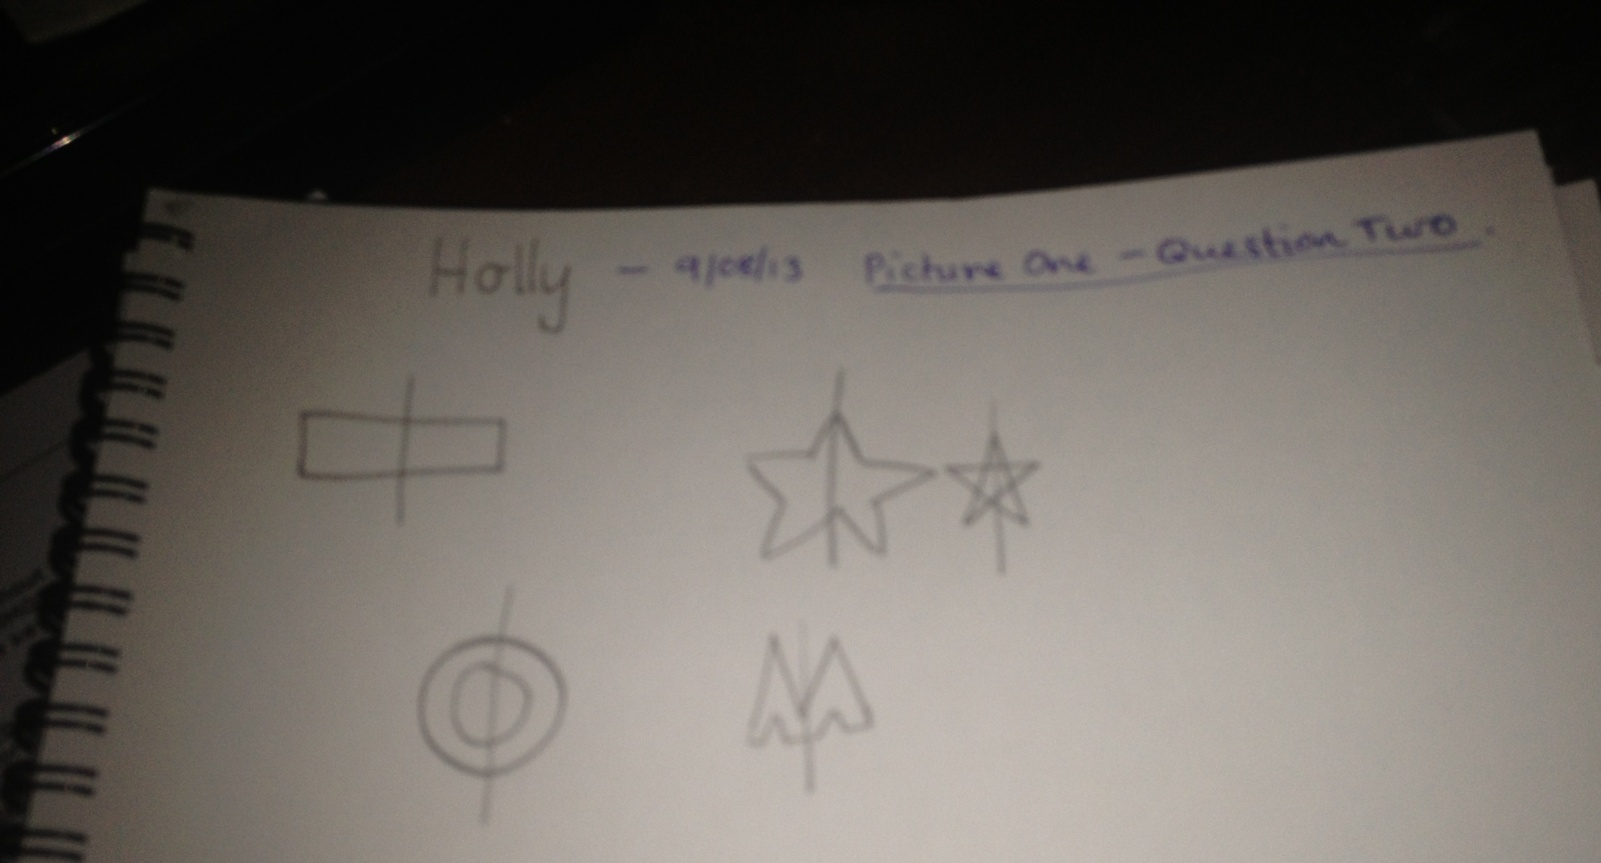 Holly - 9/08/13 Picture One - Question Two.